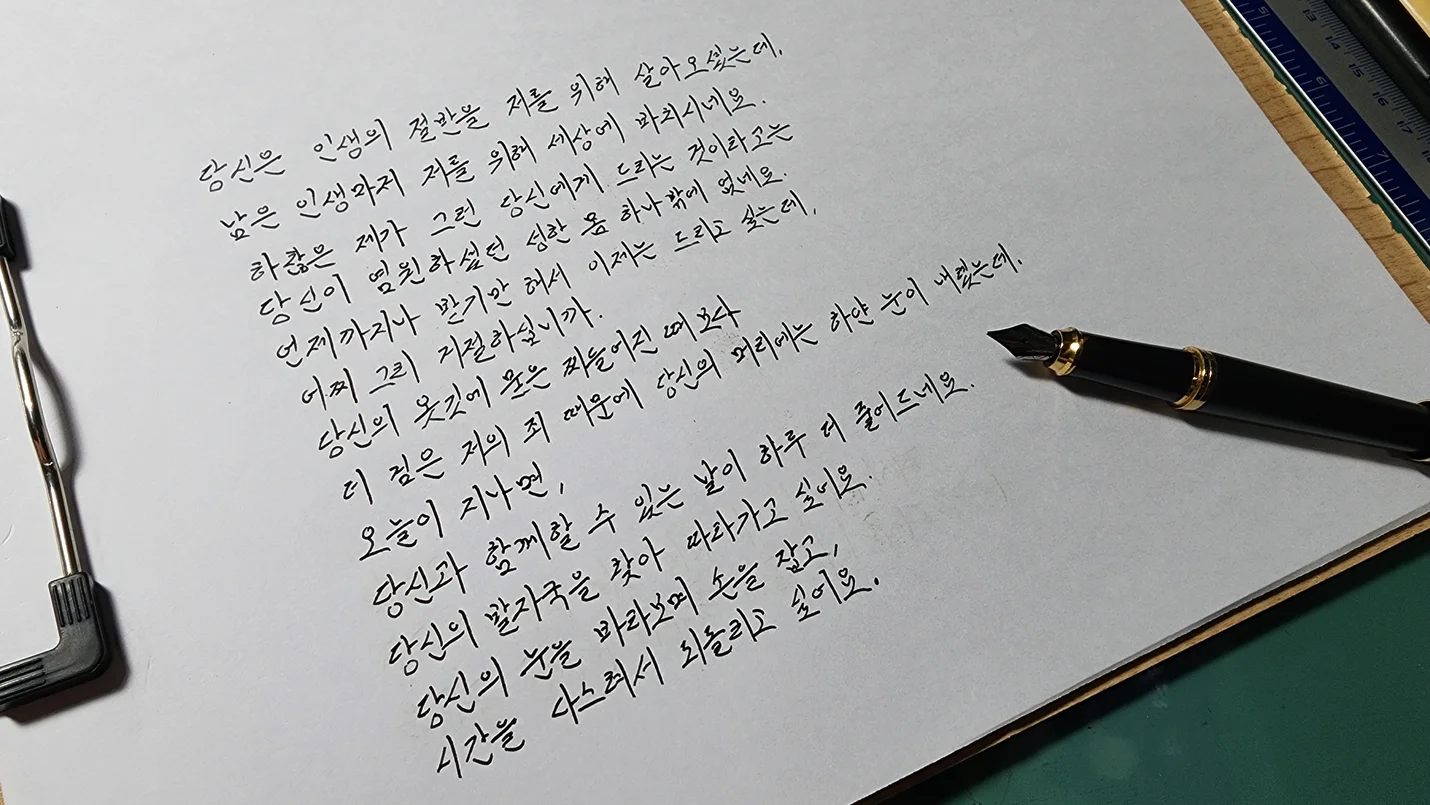 당신은 인생의 절반을 저를 위해 살아오셨는데,
남은 인생마저 저를 위해 세상에 바치시네요.
하찮은 제가 그런 당신에게 드리는 것이라고는
당신이 염원하셨던 성한 몸 하나 밖에 없네요.
언제까지나 받기만 해서 이제는 드리고 싶은데,
어찌 그리 거절하십니까.
당신의 옷깃에 묻은 찌들어진 때 보다
더 검은 저의 죄 때문에 당신의 머리에는 하얀 눈이 내렸는데.
오늘이 지나면,
당신과 함께할 수 있는 날이 하루 더 줄어드네요.
당신의 발자국을 찾아 따라가고 싶어요.
당신의 눈을 바라보며 손을 잡고,
시간을 다스려서 되돌리고 싶어요.
5
13
14
15
6
16
17
7